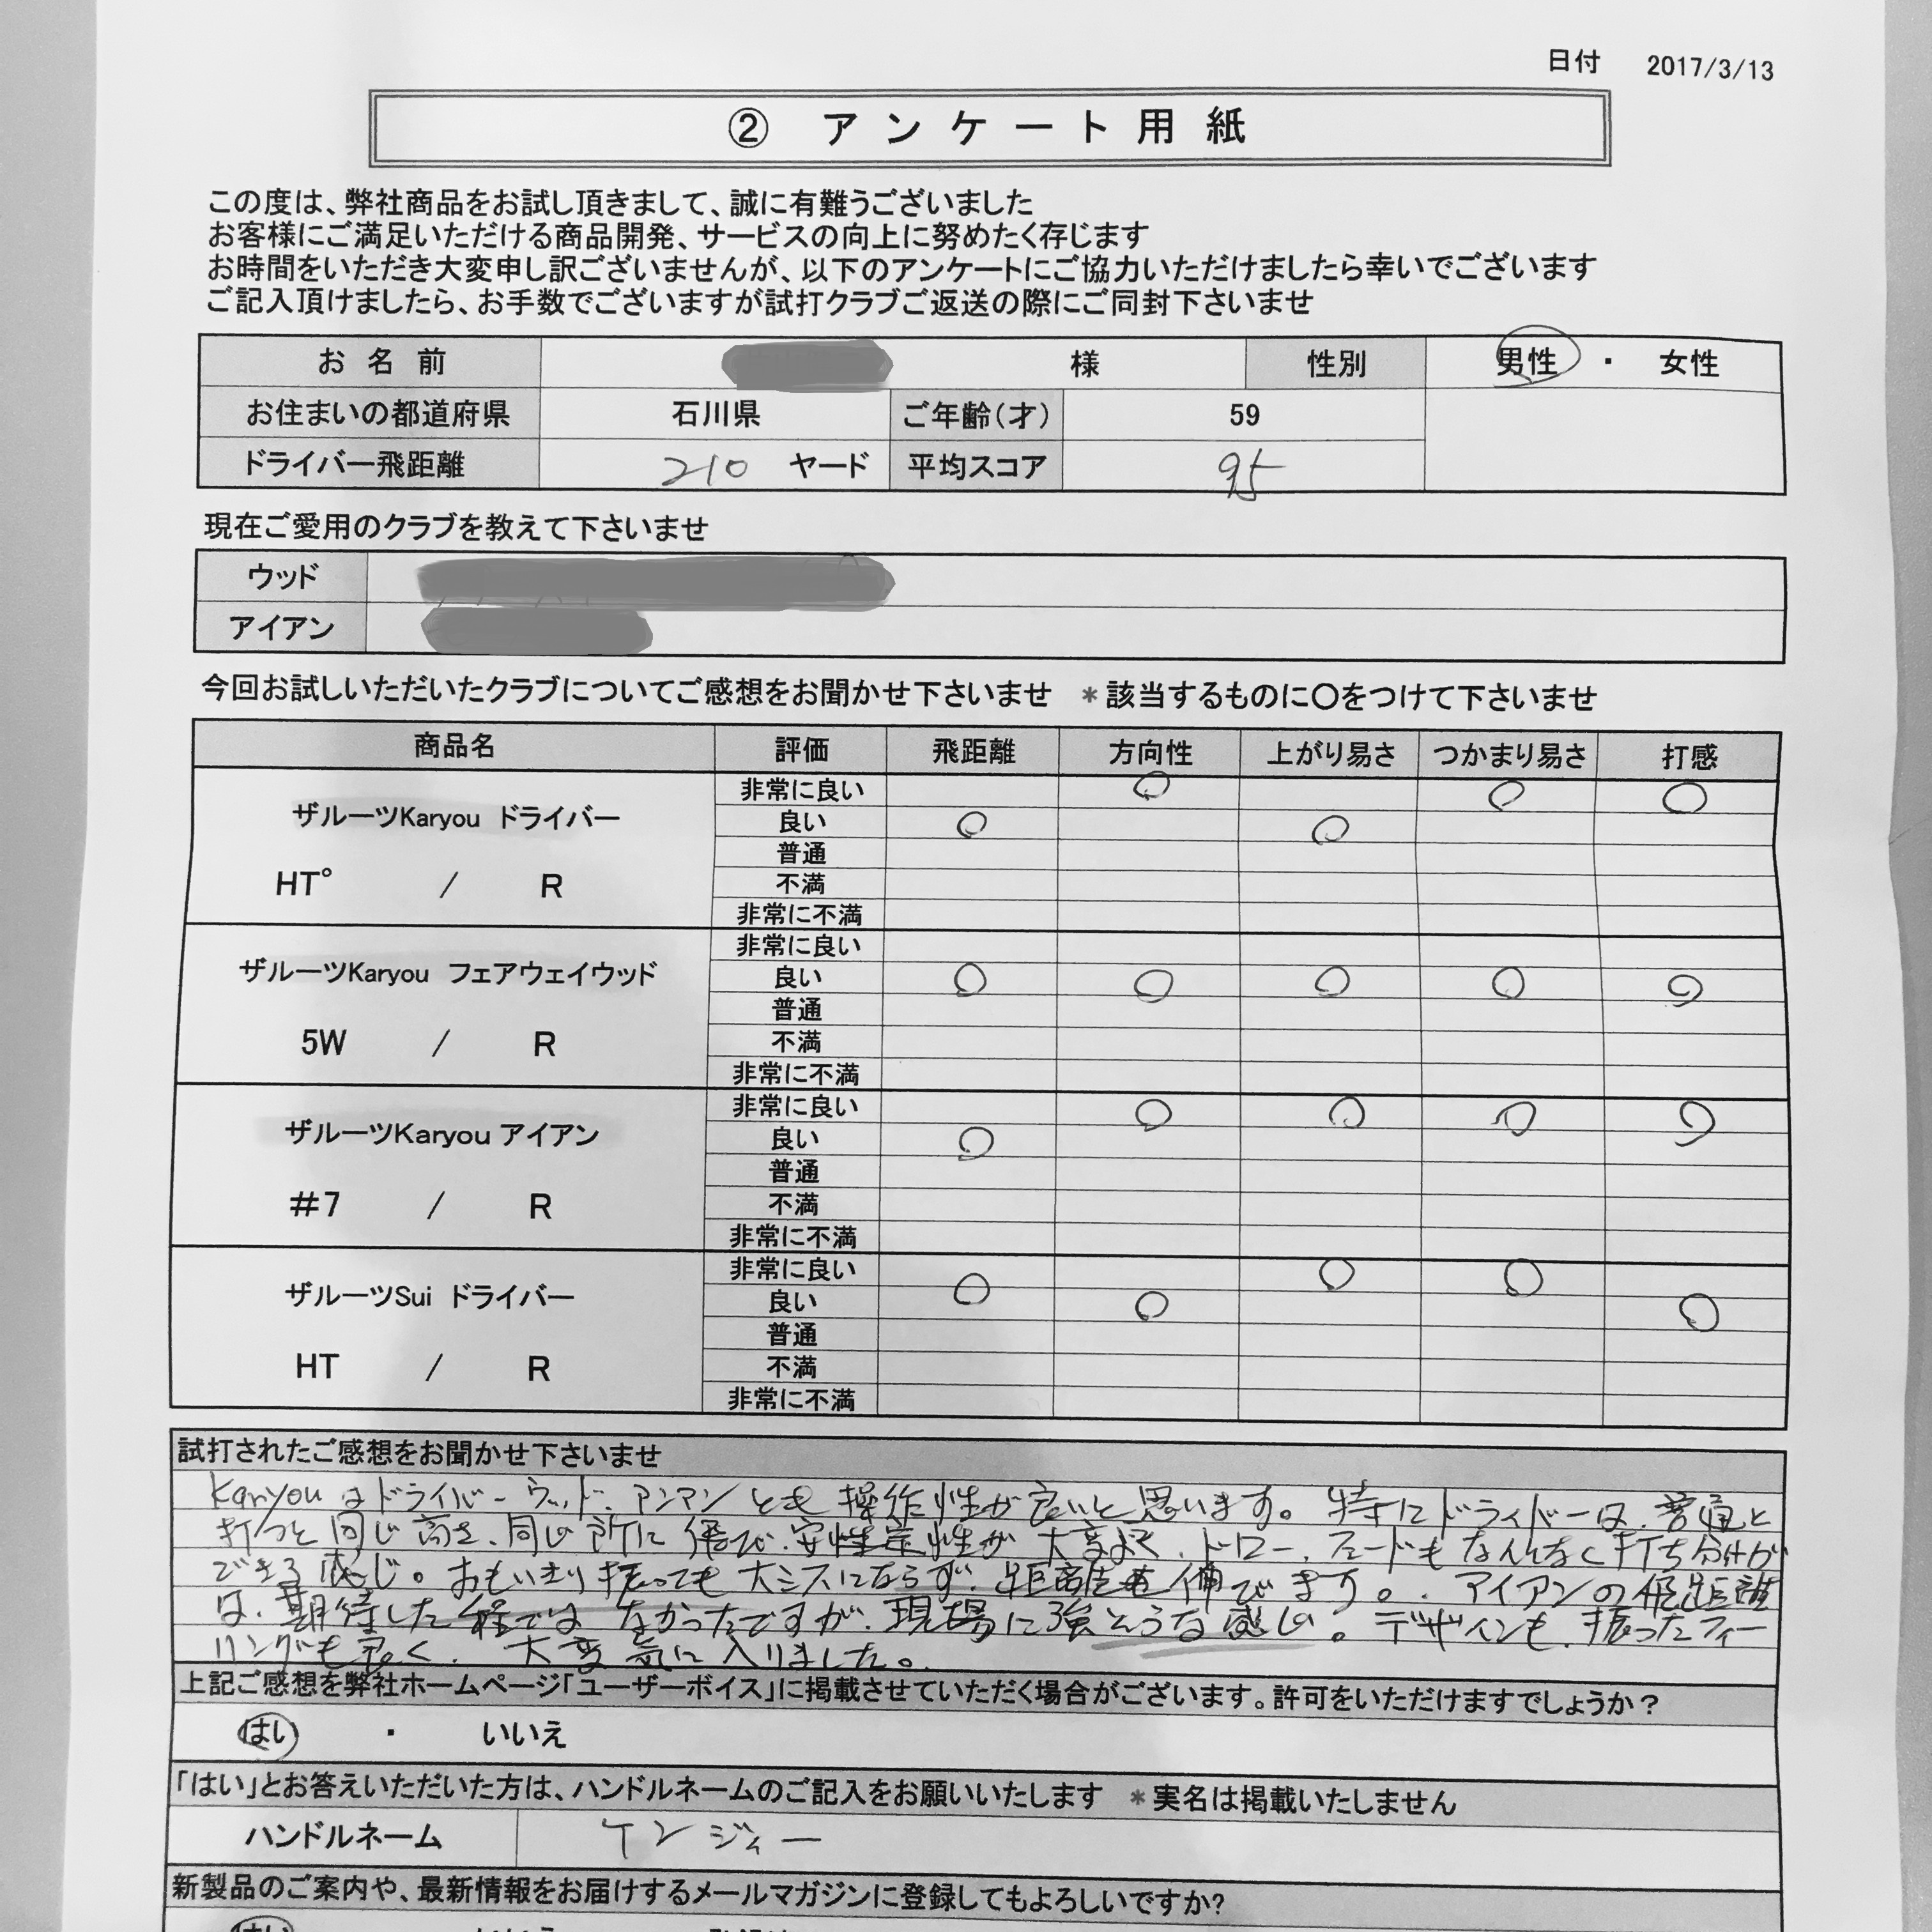 日付 2017/3/13
② アンケート用紙
この度は、弊社商品をお試し頂きまして、誠に有難うございました
お客様にご満足いただける商品開発、サービスの向上に努めたく存じます
お時間をいただき大変申し訳ございませんが、以下のアンケートにご協力いただけましたら幸いでございます
ご記入頂けましたら、お手数でございますが試打クラブご返送の際にご同封下さいませ
お名前 様 性別 男性 ・ 女性
お住まいの都道府県 石川県 ご年齢(才) 59
ドライバー飛距離 210 ヤード 平均スコア 95
現在ご愛用のクラブを教えて下さいませ
ウッド
アイアン
今回お試しいただいたクラブについてご感想をお聞かせ下さいませ *該当するものに〇をつけて下さいませ
商品名 評価 飛距離 方向性 上がり易さ つかまり易さ 打感
ザルーツKaryou ドライバー
HT° / R
非常に良い
良い
普通
不満
非常に不満
ザルーツKaryou フェアウェイウッド
5W / R
非常に良い
良い
普通
不満
非常に不満
ザルーツKaryou アイアン
#7 / R
非常に良い
良い
普通
不満
非常に不満
ザルーツSui ドライバー
HT / R
非常に良い
良い
普通
不満
非常に不満
試打されたご感想をお聞かせ下さいませ
Karyouはドライバー、ウッド、アンマンとも操作性が良いと思います。特にドライバーは、普通と
打つと同じ高さ、同じ所に飛び、安定性が大変よく、ドロー、フェードもなんなく打ち分けが
できる感じ。おもいきり振っても大ミスにならず、距離も伸びます。アイアンの飛距離
は、期待した程ではなかったですが、現場に強そうな感じ。デザインも、振ったフィー
リングも良く、大変気に入りました。
上記ご感想を弊社ホームページ「ユーザーボイス」に掲載させていただく場合がございます。許可をいただけますでしょうか?
はい ・ いいえ
「はい」とお答えいただいた方は、ハンドルネームのご記入をお願いいたします *実名は掲載いたしません
ハンドルネーム ケンジィー
新製品のご案内や、最新情報をお届けするメールマガジンに登録してもよろしいですか?
はい